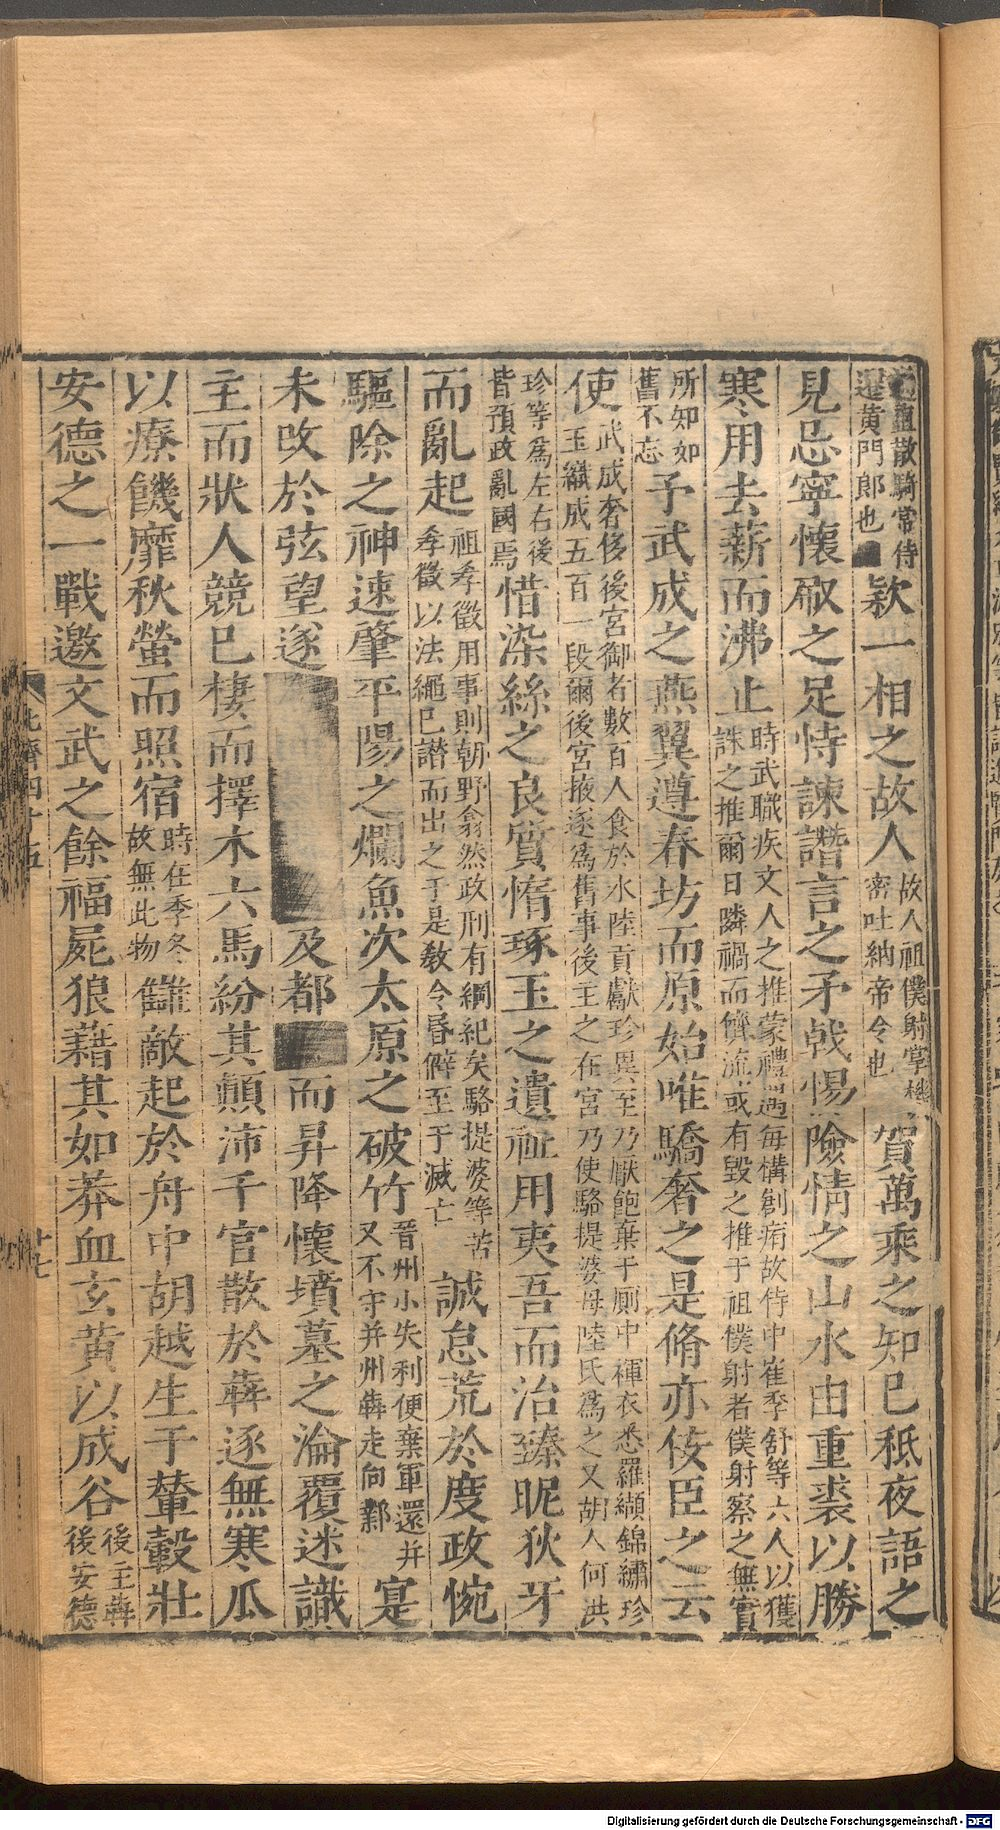 直散騎常侍
遷黃門郎也
欵一相之故人
故人祖僕射掌機
密吐納帝令也
賀萬乘之知已秪夜語之
見忌寧懷㕞之足恃諫譖言之矛戟惕險情之山水由重裘以勝
寒用去薪而沸止
時武職疾文人之推蒙禮遇每構創痏故侍中崔季舒等六人以獲
誅之推爾日隣禍而儕流或有毀之推于祖僕射者僕射察之無實
所知如
舊不忘
予武成之燕翼遵春坊而原始唯驕奢之是脩亦佞臣之云
使
武成奢侈後宮御者數百人食於水陸貢獻珍異至乃厭飽棄于厠中褌衣悉羅纈錦繡珍
玉織成五百一段爾後宮掖遂爲舊事後主之在宮乃使駱提婆母陸氏爲之又胡人何洪
珍等爲左右後
皆預政亂國焉
惜染絲之良質惰琢玉之遺祉用夷吾而治臻昵狄牙
而亂起
祖孝徵用事則朝野翕然政刑有綱紀矣駱提婆等苦
孝徵以法繩已譖而出之于是教令昬僻至于滅亡
誠怠荒於度政惋
驅除之神速肇平陽之爛魚次太原之破竹
晉州小失利便棄軍還并
又不守并州犇走向鄴
寔
未改於弦望遂
及都
而昇降懷墳墓之淪覆迷識
主而狀人競已棲而擇木六馬紛其顛沛千官散於犇逐無寒瓜
以療饑靡秋螢而照宿
時在季冬
故無此物
讎敵起於舟中胡越生于輦轂壯
安德之一戰邀文武之餘福屍狼藉其如莽血玄黃以成谷
後主犇
後安德
北齊四十五
廿七
Digitalisierung gefördert durch die Deutsche Forschungsgemeinschaft - DFG